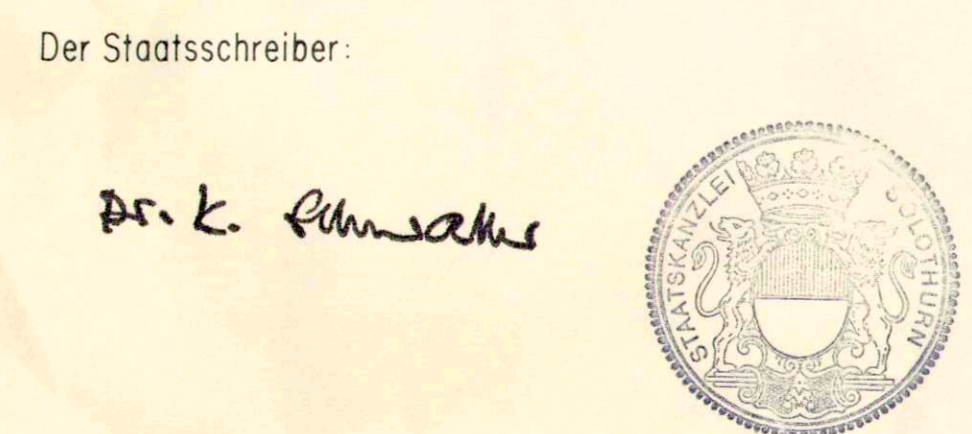 Der Staatsschreiber:
Dr. K. Schwaller
STAATSKANZLEI SOLOTHURN